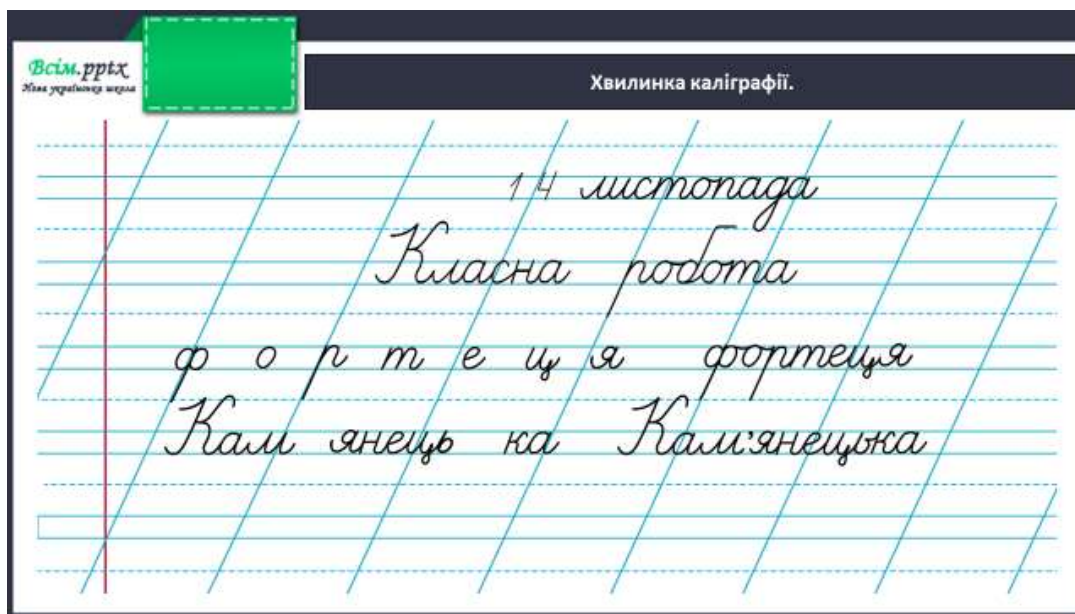 Всім.pptx
Нова українська школа
Хвилинка каліграфії.
14 листопада
Класна робота
ф о р т е ц я фортеця
Кам янець ка Кам'янецька